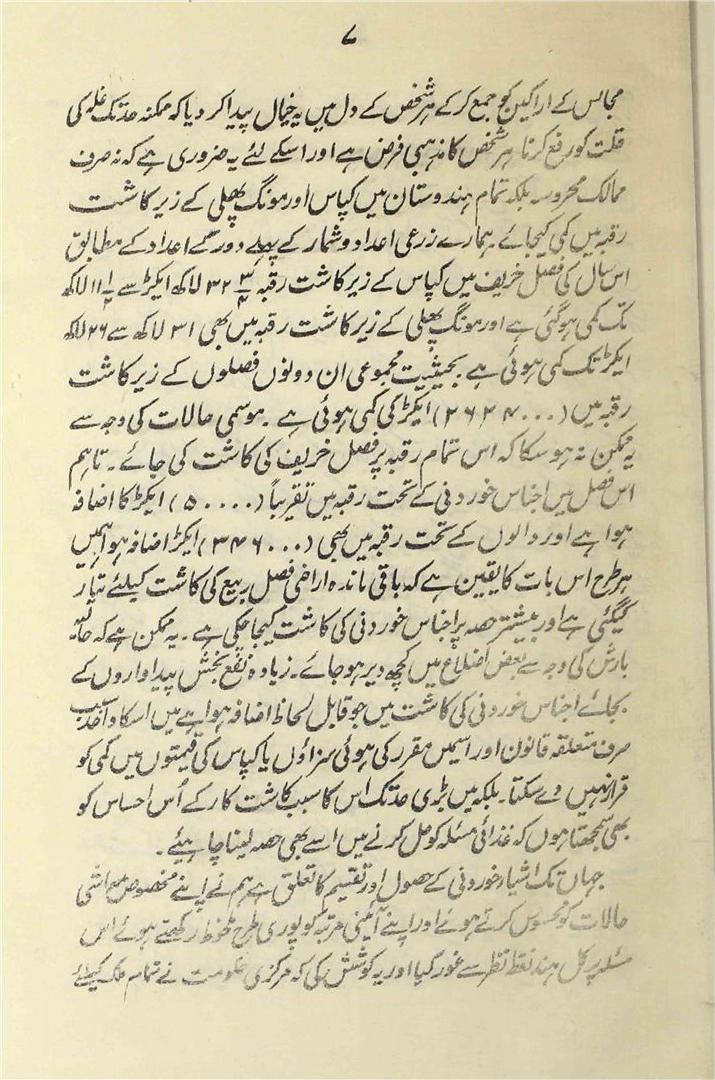 ۷
مجالس کے اراکین کو جمع کر کے ہر شخص کے دل میں یہ خیال پیدا کر دیا کہ ممکنہ حد تک غلہ کی
قلت کو رفع کرنا ہر شخص کا مذہبی فرض ہے اور اسکے لئے یہ ضروری ہے کہ نہ صرف
ممالک محروسہ بلکہ تمام ہندوستان میں کپاس اور مونگ پھلی کے زیر کاشت
رقبہ میں کمی کیجائے ۔ ہمارے زرعی اعداد و شمار کے پہلے دور کے اعداد کے مطابق
اس سال کی فصل خریف میں کپاس کے زیر کاشت رقبہ ۳۲ ۳/۴ لاکھ ایکڑ سے ۱۱ ۱/۴ لاکھ
تک کمی ہو گئی ہے اور مونگ پھلی کے زیر کاشت رقبہ میں بھی ۳۱ لاکھ سے ۲۶ لاکھ
ایکڑ تک کمی ہوئی ہے ۔ بحیثیت مجموعی ان دونوں فصلوں کے زیر کاشت
رقبہ میں (۲۶۳۴۰۰۰) ایکڑ کی کمی ہوئی ہے ۔ موسمی حالات کی وجہ سے
یہ ممکن نہ ہو سکا کہ اس تمام رقبہ پر فصل خریف کی کاشت کی جائے ۔ تاہم
اس فصل میں اجناس خوردنی کے تحت رقبہ میں تقریباً (۵۰۰۰۰) ایکڑ کا اضافہ
ہوا ہے اور دالوں کے تحت رقبہ میں بھی (۳۴۶۰۰۰) ایکڑ اضافہ ہوا ہمیں
ہر طرح اس بات کا یقین ہے کہ باقی ماندہ اراضی فصل ربیع کی کاشت کیلئے تیار
کیگئی ہے اور بیشتر حصہ پر اجناس خوردنی کی کاشت کیجا چکی ہے ۔ یہ ممکن ہے کہ حالیہ
بارش کی وجہ سے بعض اضلاع میں کچھ دیر ہو جائے ۔ زیادہ نفع بخش پیداواروں کے
بجائے اجناس خوردنی کی کاشت میں جو قابل لحاظ اضافہ ہوا ہے میں اسکا واحد سبب
صرف متعلقہ قانون اور اسمیں مقرر کی ہوئی سزاؤں یا کپاس کی قیمتوں میں کمی کو
قرار نہیں دے سکتا ۔ بلکہ میں بڑی حد تک اس کا سبب کاشت کار کے اُس احساس کو
بھی سمجھتا ہوں کہ غذائی مسئلہ کو حل کرنے میں اسے بھی حصہ لینا چاہیئے ۔
جہاں تک اشیاء خوردنی کے حصول اور تقسیم کا تعلق ہے ہم نے اپنے مخصوص معاشی
حالات کو محسوس کرتے ہوئے اور اپنے آئینی مرتبہ کو پوری طرح ملحوظ رکھتے ہوئے اس
مسئلہ پر کل ہند نقطہ نظر سے غور کیا اور یہ کوشش کی کہ مرکزی حکومت نے تمام ملک کیلئے